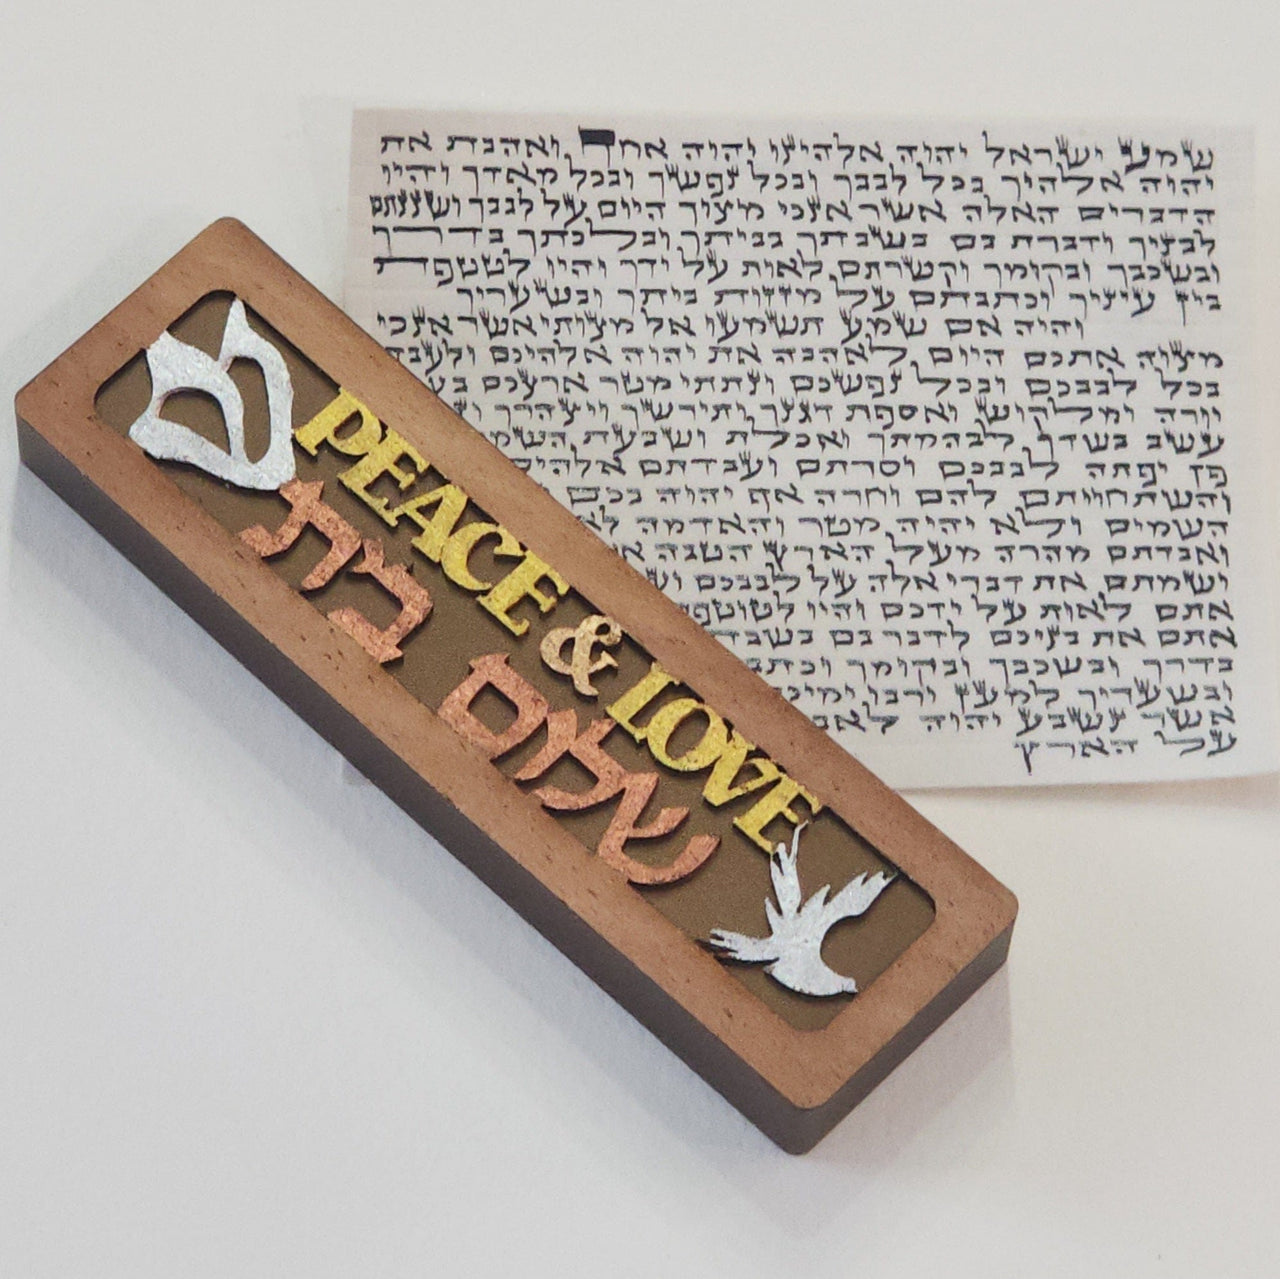 ש
PEACE & LOVE
שלום בית
שמע ישראל יהוה אלהינו יהוה אחד ואהבת את
יהוה אלהיך בכל לבבך ובכל נפשך ובכל מאדך והיו
הדברים האלה אשר אנכי מצוך היום על לבבך ושננתם
לבניך ודברת בם בשבתך בביתך ובלכתך בדרך
ובשכבך ובקומך וקשרתם לאות על ידך והיו לטטפת
בין עיניך וכתבתם על מזזות ביתך ובשעריך
והיה אם שמע תשמעו אל מצותי אשר אנכי
מצוה אתכם היום לאהבה את יהוה אלהיכם
בכל לבבכם ובכל נפשכם ונתתי מטר ארצכם
יורה ומלקוש ואספת דגנך ותירשך ויצהרך
עשב בשדך לבהמתך ואכלת ושבעת
פן יפתה לבבכם וסרתם ועבדתם אלהים
והשתחויתם להם וחרה אף יהוה בכם
השמים ולא יהיה מטר והאדמה
ואבדתם מהרה מעל הארץ הטבה
ושמתם את דברי אלה על לבבכם
אתם לאות על ידכם והיו
אתם את בניכם לדבר בם
בדרך ובשכבך ובקומך
ובשעריך למען ירבו
אשר נשבע יהוה
על הארץ